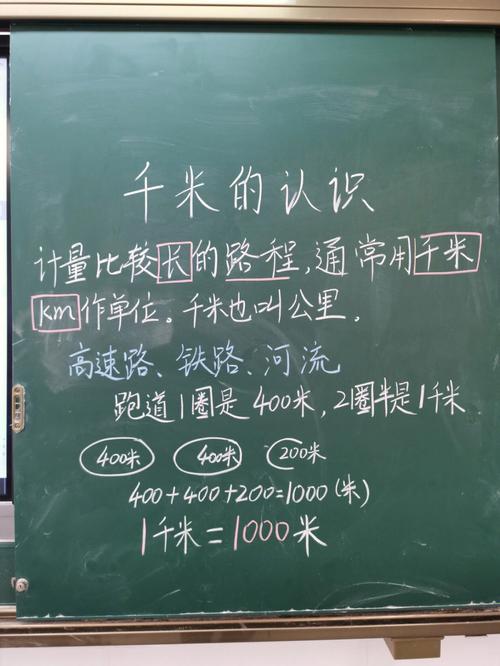 千米的认识
计量比较长的路程,通常用千米
km作单位。千米也叫公里.
高速路、铁路、河流
跑道1圈是400米,2圈半是1千米
400米 400米 200米
400+400+200=1000(米)
1千米=1000米